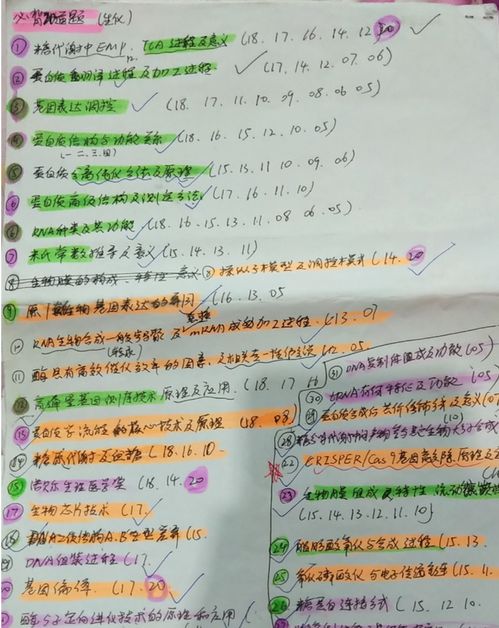 必背30题 (生化)
① 糖代谢中EMP、TCA过程及意义 (18. 17. 16. 14. 12 20)
② 蛋白质翻译过程及加工过程 (17. 14. 12. 07. 06)
③ 基因表达调控 (18. 17. 11. 10. 09. 08. 06 05)
④ 蛋白质结构与功能关系 (18. 16. 15. 12. 10. 05)
(一 二. 三. 四)
⑤ 蛋白质分离纯化方法及原理 (15. 13. 11 10. 09. 06)
⑥ 蛋白质高级结构及测定方法 (17. 16. 11. 10)
⑥ RNA种类及其功能 (18. 16. 15. 13. 11. 08 06. 05)
⑦ 米氏常数推导及意义 (15. 14. 13. 11)
⑧ 生物膜的构成、特性 意义 ⑧ 操纵子模型及调控模式 (14. 20
⑨ 原/真核生物基因表达的异同 (16. 13. 05
⑩ RNA生物合成一般步骤及mRNA成熟加工过程. (13. 07
(转录)
⑪ 酶具有高效催化效率的因素, (12. 05
高通量基因测序技术原理及应用. (18. 17 16
⑬ 蛋白质学流程的核心技术及原理 (18. 08)
⑭ 糖原代谢及血糖 (18. 16. 10.
⑮ 诺贝尔生理医学奖 (18. 14. 20
⑰ 生物芯片技术 (17.
A. B 型差异 (15.
DNA组装过程 (17.
基因编译. (17. 20
酶分子定向进化技术的原理和应用 (
㉛ DNA复制体组成及功能 (05)
㉚ tRNA结构特征及功能 (05)
(10)
㉒ CRISPER/Cas9基因敲除原理及
㉓ 生物膜组成及特性
(15. 14. 13. 12. 11. 10)
㉔ 脂肪酸氧化与合成过程 (15. 13.
㉕ 氧化磷酸化与电子传递链 (15. 1
㉖ 糖蛋白连接方式 (15. 12 10.